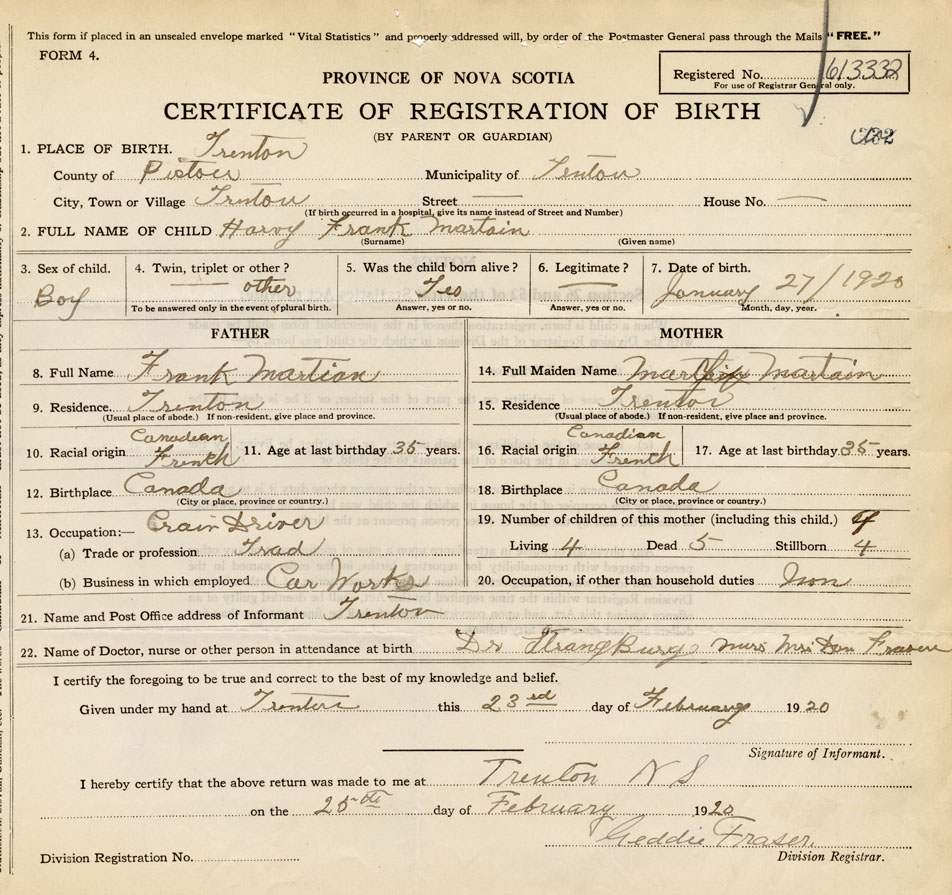 This form if placed in an unsealed envelope marked "Vital Statistics" and properly addressed will, by order of the Postmaster General pass through the Mails "FREE."
FORM 4.
PROVINCE OF NOVA SCOTIA
Registered No. 613332
For use of Registrar General only.
CERTIFICATE OF REGISTRATION OF BIRTH
(BY PARENT OR GUARDIAN)
1. PLACE OF BIRTH. Trenton
County of Pictou Municipality of Tenton
City, Town or Village Trenton Street — House No. —
(If birth occurred in a hospital, give its name instead of Street and Number)
2. FULL NAME OF CHILD Harvy Frank Martain
(Surname) (Given name)
3. Sex of child. 4. Twin, triplet or other? 5. Was the child born alive? 6. Legitimate? 7. Date of birth.
Boy — other Yes — January 27/1920
To be answered only in the event of plural birth. Answer, yes or no. Answer, yes or no. Month, day, year.
FATHER MOTHER
8. Full Name Frank Martian 14. Full Maiden Name Martain
9. Residence. Trenton 15. Residence Trenton
(Usual place of abode.) If non-resident, give place and province. (Usual place of abode.) If non-resident, give place and province.
Canadian Canadian
10. Racial origin French 11. Age at last birthday 36 years. 16. Racial origin French 17. Age at last birthday 35 years.
12. Birthplace Canada 18. Birthplace Canada
(City or place, province or country.) (City or place, province or country.)
13. Occupation:— Crain Driver 19. Number of children of this mother (including this child.) 9
(a) Trade or profession. Trad Living 4 Dead 5 Stillborn 4
(b) Business in which employed Car Works 20. Occupation, if other than household duties Non
21. Name and Post Office address of Informant Trenton
22. Name of Doctor, nurse or other person in attendance at birth Dr Mrs Dan Fraser
I certify the foregoing to be true and correct to the best of my knowledge and belief.
Given under my hand at Trenton this 23rd day of February 1920
Signature of Informant.
I hereby certify that the above return was made to me at Trenton N S
on the 25th day of February 1920
Geddie Fraser
Division Registration No. Division Registrar.